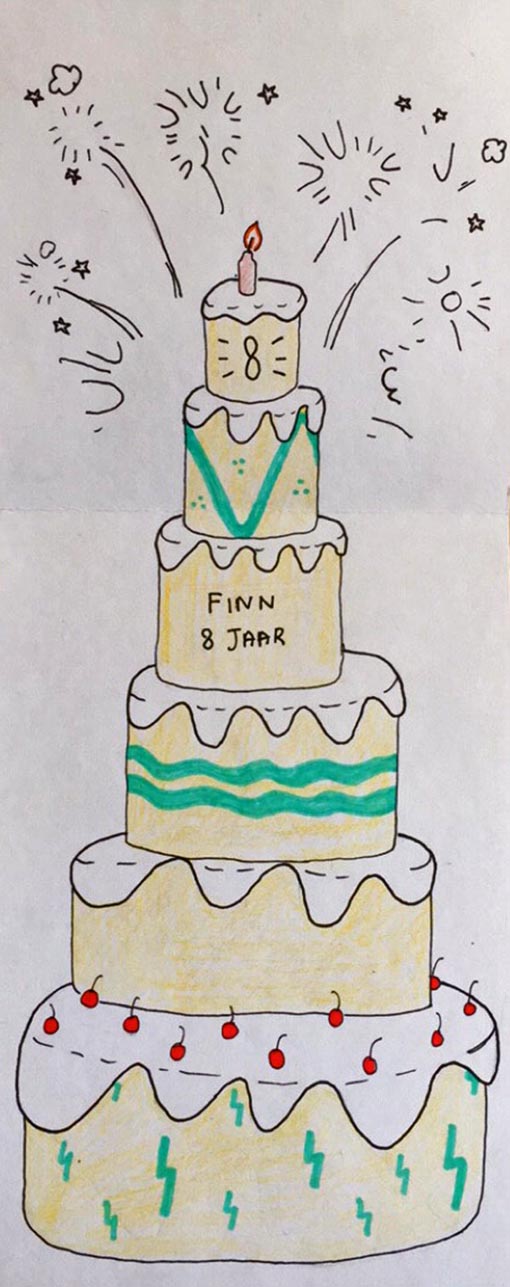 8
FINN
8 JAAR